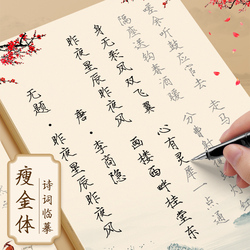 走马
嗟余听鼓应官去
分曹射
隔座送钩春酒暖
心有灵犀一点通
身无彩凤双飞翼
画楼西畔桂堂东
昨夜星辰昨夜风
唐·李商隐
无题
昨夜星辰昨夜风
瘦金体
诗词临摹